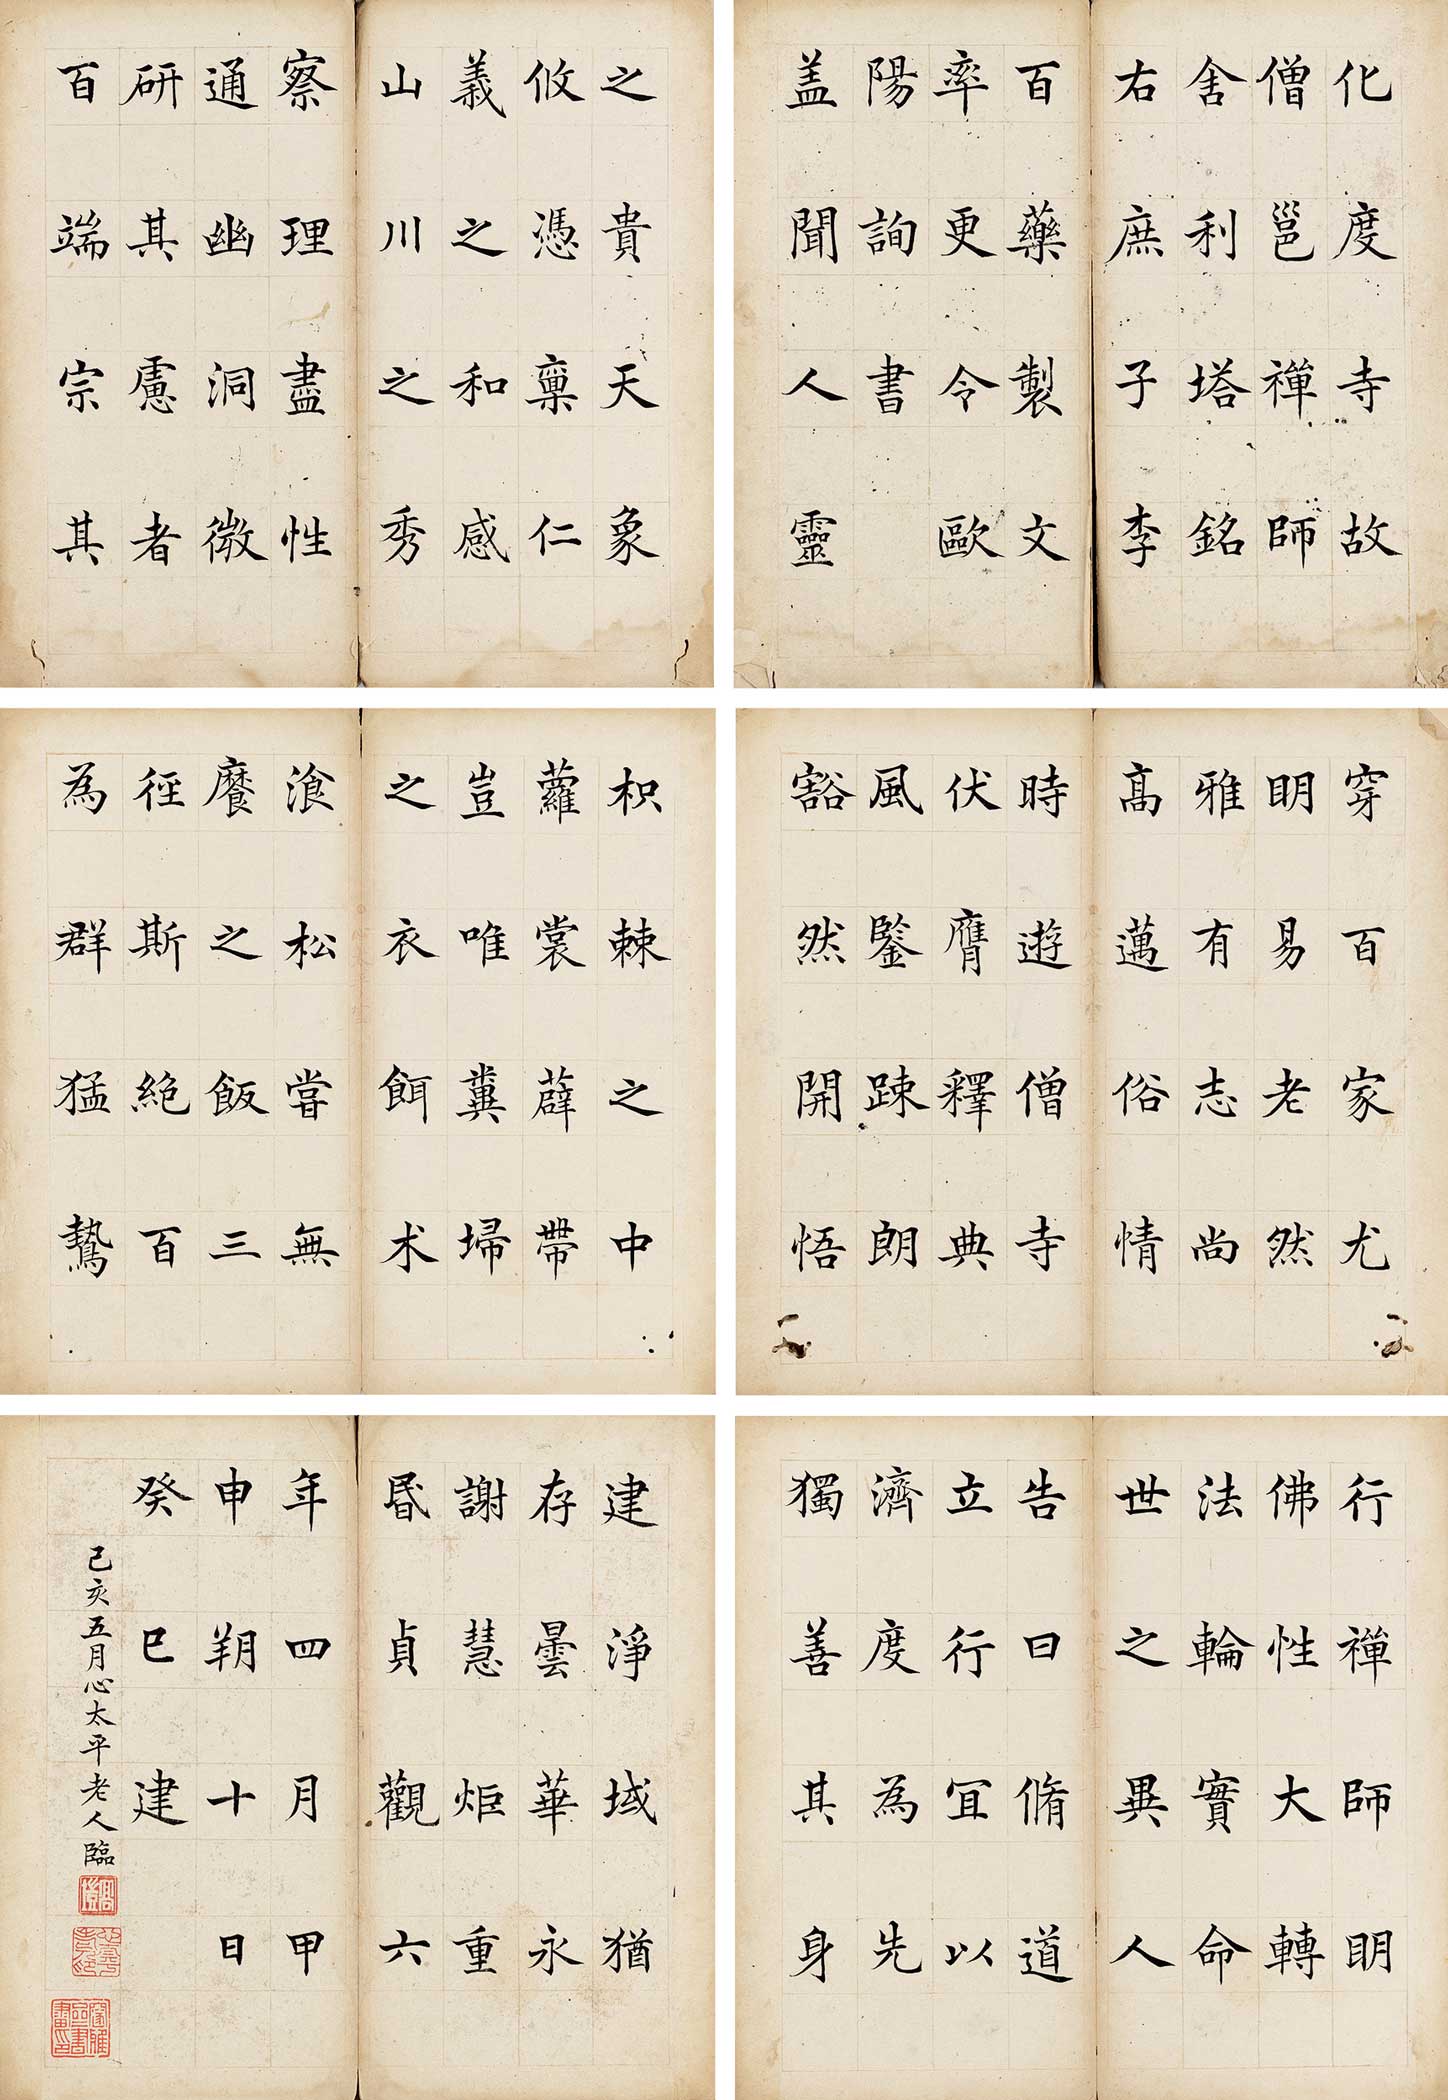 化度寺故
僧邕禪師
舍利塔銘
右庶子李
百藥製文
率更令歐
陽詢書
盖聞人靈
之貴天象
攸憑稟仁
義之和感
山川之秀
察理盡性
通幽洞微
研其慮者
百端宗其
穿百家尤
明易老然
雅有志尚
高邁俗情
時遊僧寺
伏膺釋典
風鑒疎朗
豁然開悟
枳棘之中
蘿裳薜帶
豈唯糞埽
之衣餌朮
湌松嘗無
之飯三
徑斯絕百
為群猛鷙
行禪師明
佛性大轉
法輪實命
世之異人
告曰脩道
立行宜以
濟度為先
獨善其身
建淨域猶
存曇華永
謝慧炬重
昬貞觀六
年四月甲
申朔十日
癸巳建
己亥五月心太平老人臨
高塏